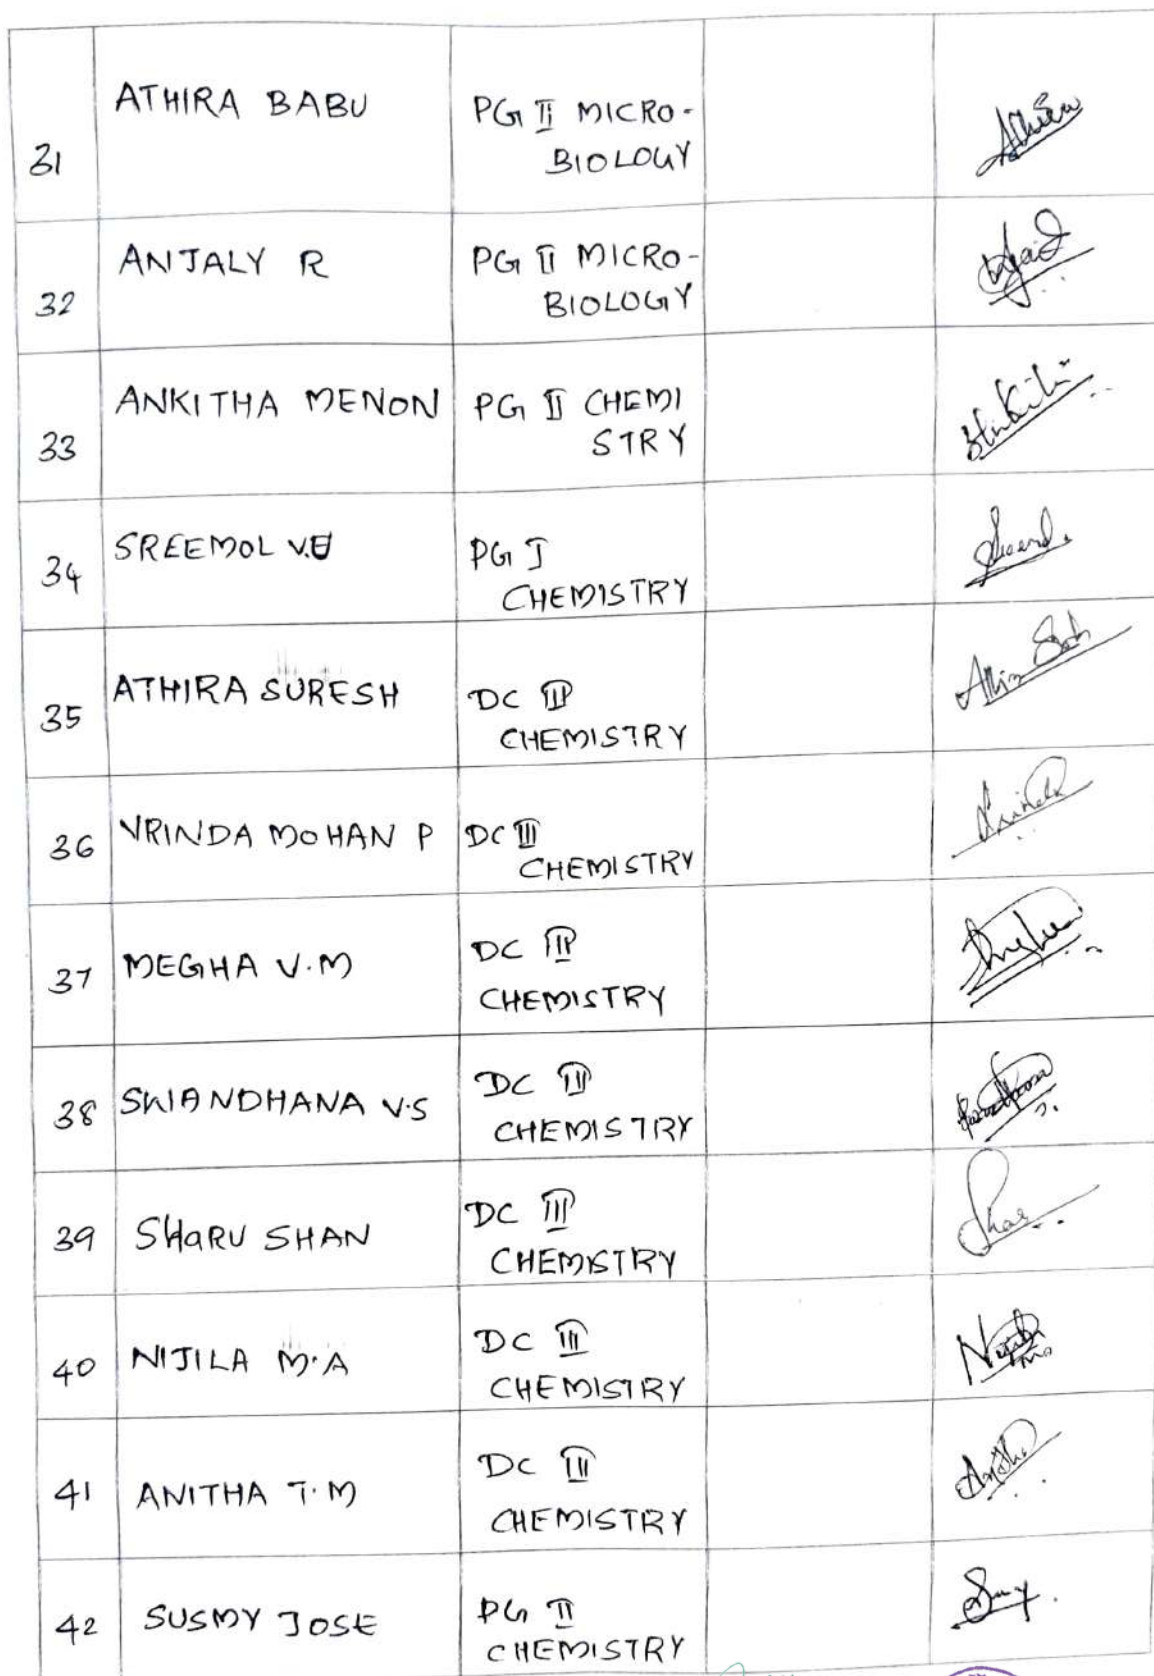 31 ATHIRA BABU PG II MICRO-
BIOLOGY
32 ANJALY R PG II MICRO-
BIOLOGY
33 ANKITHA MENON PG II CHEMI
STRY
34 SREEMOL V.U PG I
CHEMISTRY
35 ATHIRA SURESH DC III
CHEMISTRY
36 VRINDA MOHAN P DC III
CHEMISTRY
37 MEGHA V.M DC III
CHEMISTRY
38 SWANDHANA V.S DC III
CHEMISTRY
39 SHARU SHAN DC III
CHEMISTRY
40 NIJILA M.A DC III
CHEMISTRY
41 ANITHA T.M DC III
CHEMISTRY
42 SUSMY JOSE PG II
CHEMISTRY